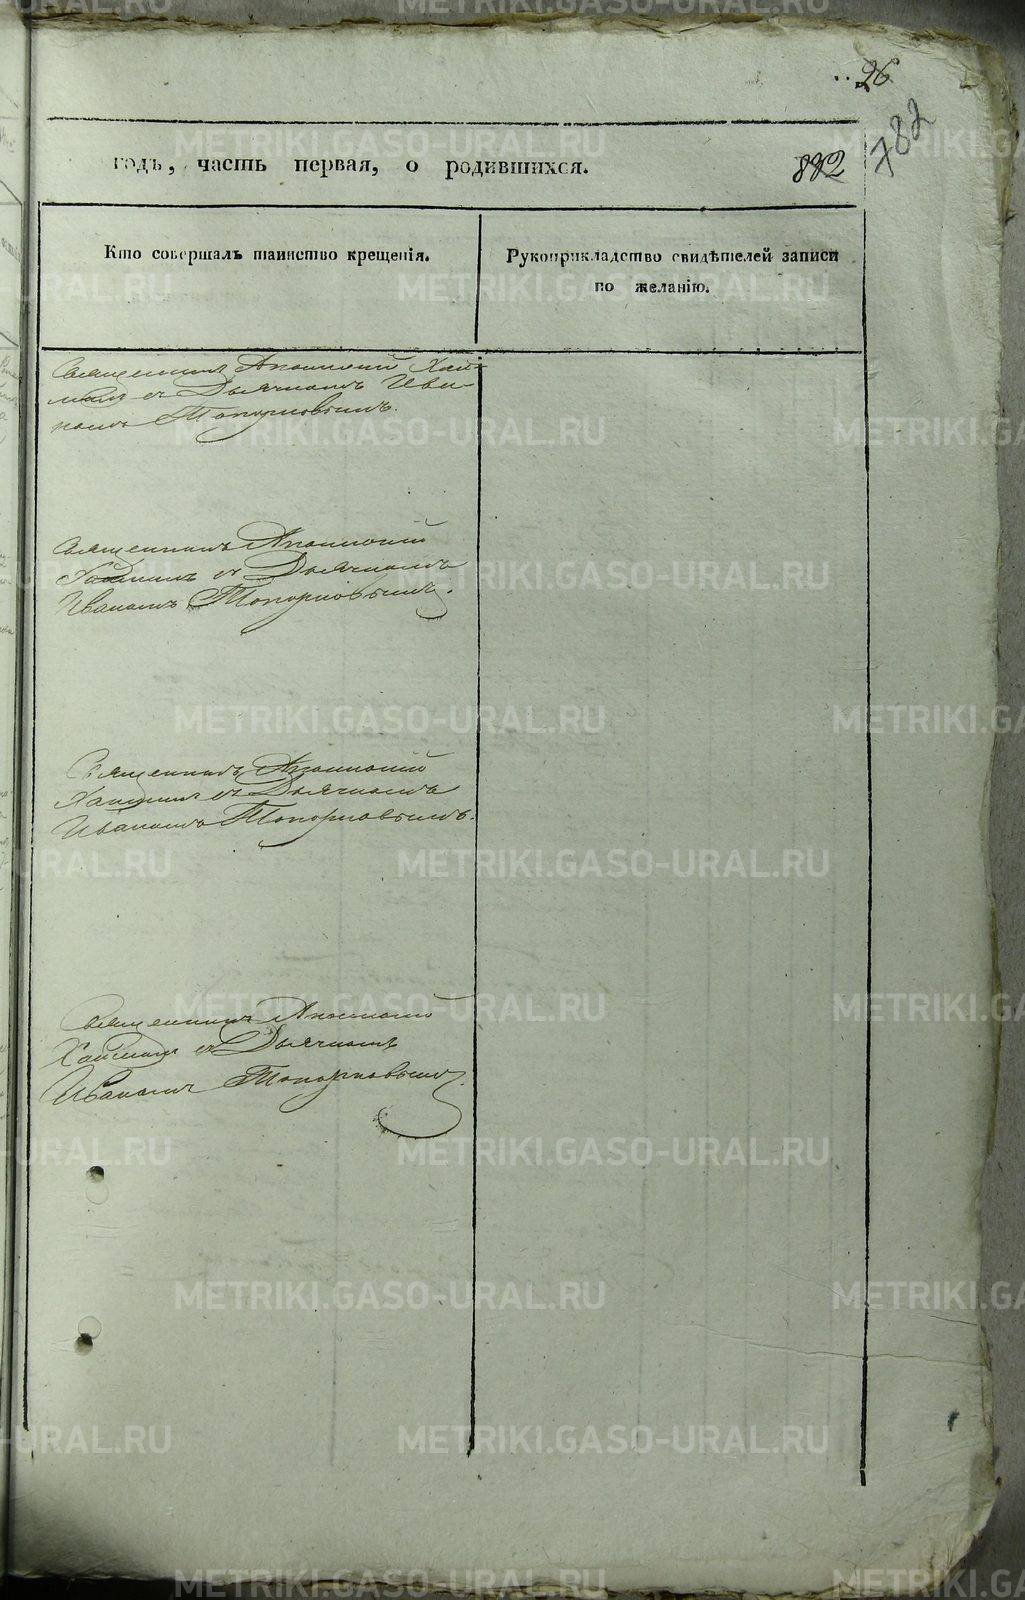 26
782
годъ, часть первая, о родившихся.
882
Кто совершалъ таинство крещенія.
Рукоприкладство свидѣтелей записи
по желанію.
Священникъ
съ Дьячкомъ Ива-
номъ Топорковымъ.
Священникъ
съ Дьячкомъ
Иваномъ Топорковымъ.
Священникъ
съ Дьячкомъ
Иваномъ Топорковымъ.
Священникъ
съ Дьячкомъ
Иваномъ Топорковымъ.
METRIKI.GASO-URAL.RU